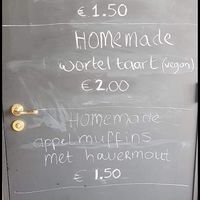 € 1.50
HOMEMADE
wortel taart (vegan)
€ 2.00
HOMEMADE
appelmuffins
met havermout
€ 1.50